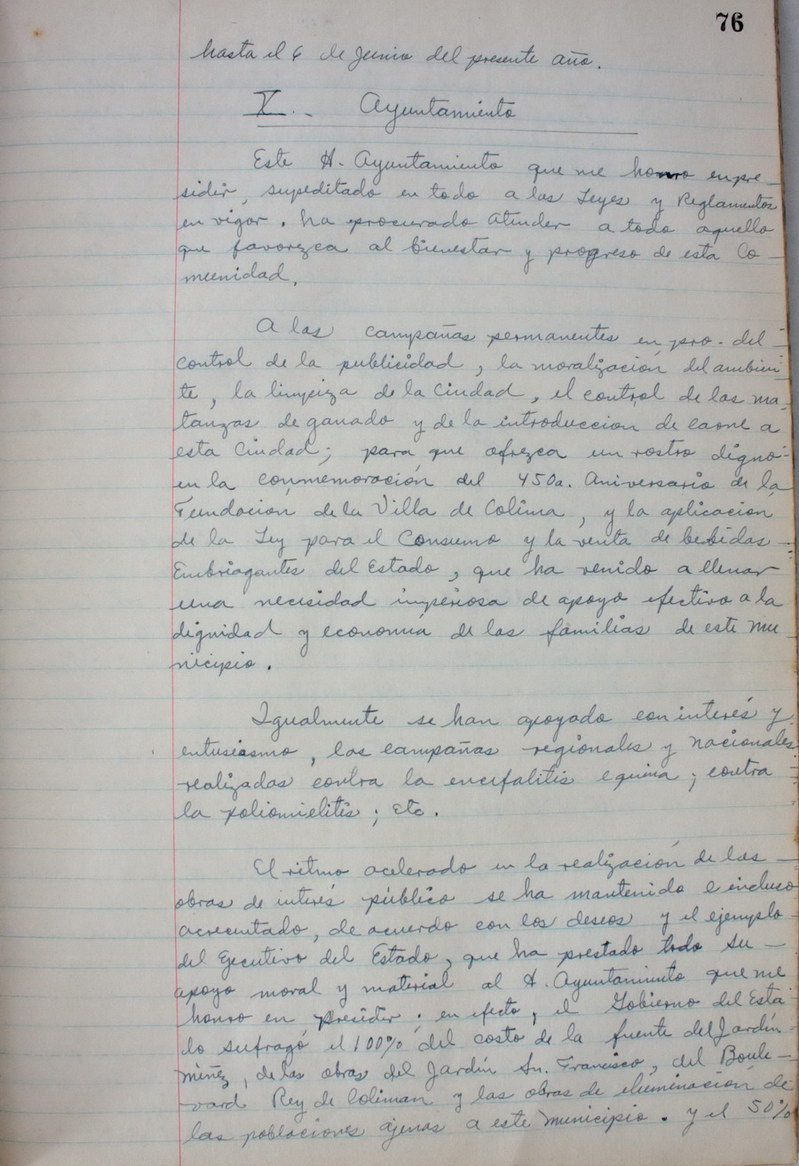 76
hasta el 6 de Junio del presente año.
X.- Ayuntamiento
Este H. Ayuntamiento que me honro en pre-
sidir, supeditado en todo a las Leyes y Reglamentos
en vigor. ha procurado atender a todo aquello
que favorezca al bienestar y progreso de esta Co-
munidad.
A las campañas permanentes en pro. del
control de la publicidad, la moralización del ambien
te, la limpieza de la Ciudad, el control de las ma-
tanzas de ganado y de la introduccion de carne a
esta Ciudad; para que ofrezca un rostro digno-
en la conmemoración del 450a. Aniversario de la
Fundación de la Villa de Colima, y la aplicación
de la Ley para el Consumo y la venta de bebidas-
Embriagantes del Estado, que ha venido a llenar
una necesidad imperiosa de apoyo efectivo a la
dignidad y economía de las familias de este Mu
nicipio.
Igualmente se han apoyado con interés y
entusiasmo, las campañas regionales y nacionales
realizadas contra la encefalitis equina; contra
la poliomielitis; etc.
El ritmo acelerado en la realización de las-
obras de interés público se ha mantenido e incluso
acrecentado, de acuerdo con los deseos y el ejemplo
del Ejecutivo del Estado, que ha prestado todo su-
apoyo moral y material al H. Ayuntamiento que me
honro en presidir. en efecto, el Gobierno del Esta
do sufragó el 100% del costo de la fuente del Jardín
Núñez, de las obras del Jardín Sn. Francisco, del Boule-
vard Rey de Coliman y las obras de iluminación de
las poblaciones ajenas a este Municipio. y el 50%